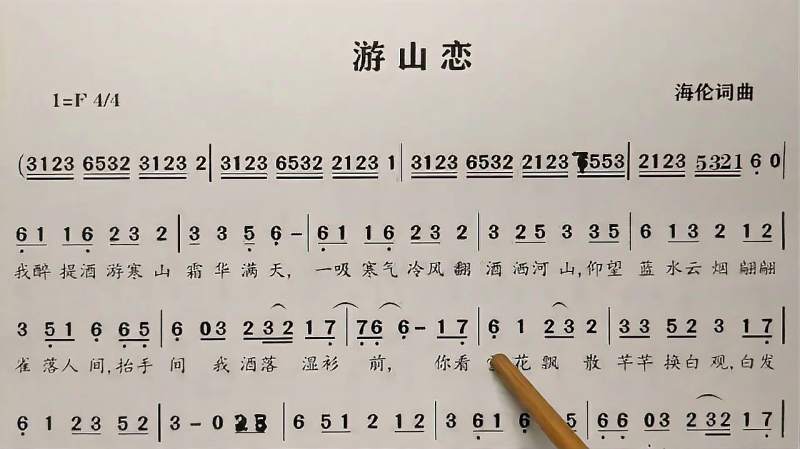 游山恋
1=F 4/4
海伦词曲
(3123 6532 3123 2 | 3123 6532 2123 1 | 3123 6532 2123 6553 | 2123 5321 6 0
6 1 1 6 2 3 2 | 3 3 5 6 – | 6 1 1 6 2 3 2 | 3 2 5 3 3 5 | 6 1 3 2 1 2 |
我醉提酒游寒山霜华满天,一吸寒气冷风翻酒洒河山,仰望蓝水云烟翩翩
3 5 1 6 6 5 | 6 03 232 17 | 76 6 – 17 | 6 1 23 2 | 3 5 23 1 7 |
雀落人间,抬手间我酒落湿衫前,你看花飘散芊芊换白观,白发
6 1 23 5 | 3 – 0 | 6 51 2 12 | 3 61 6 5 | 66 03 232 17